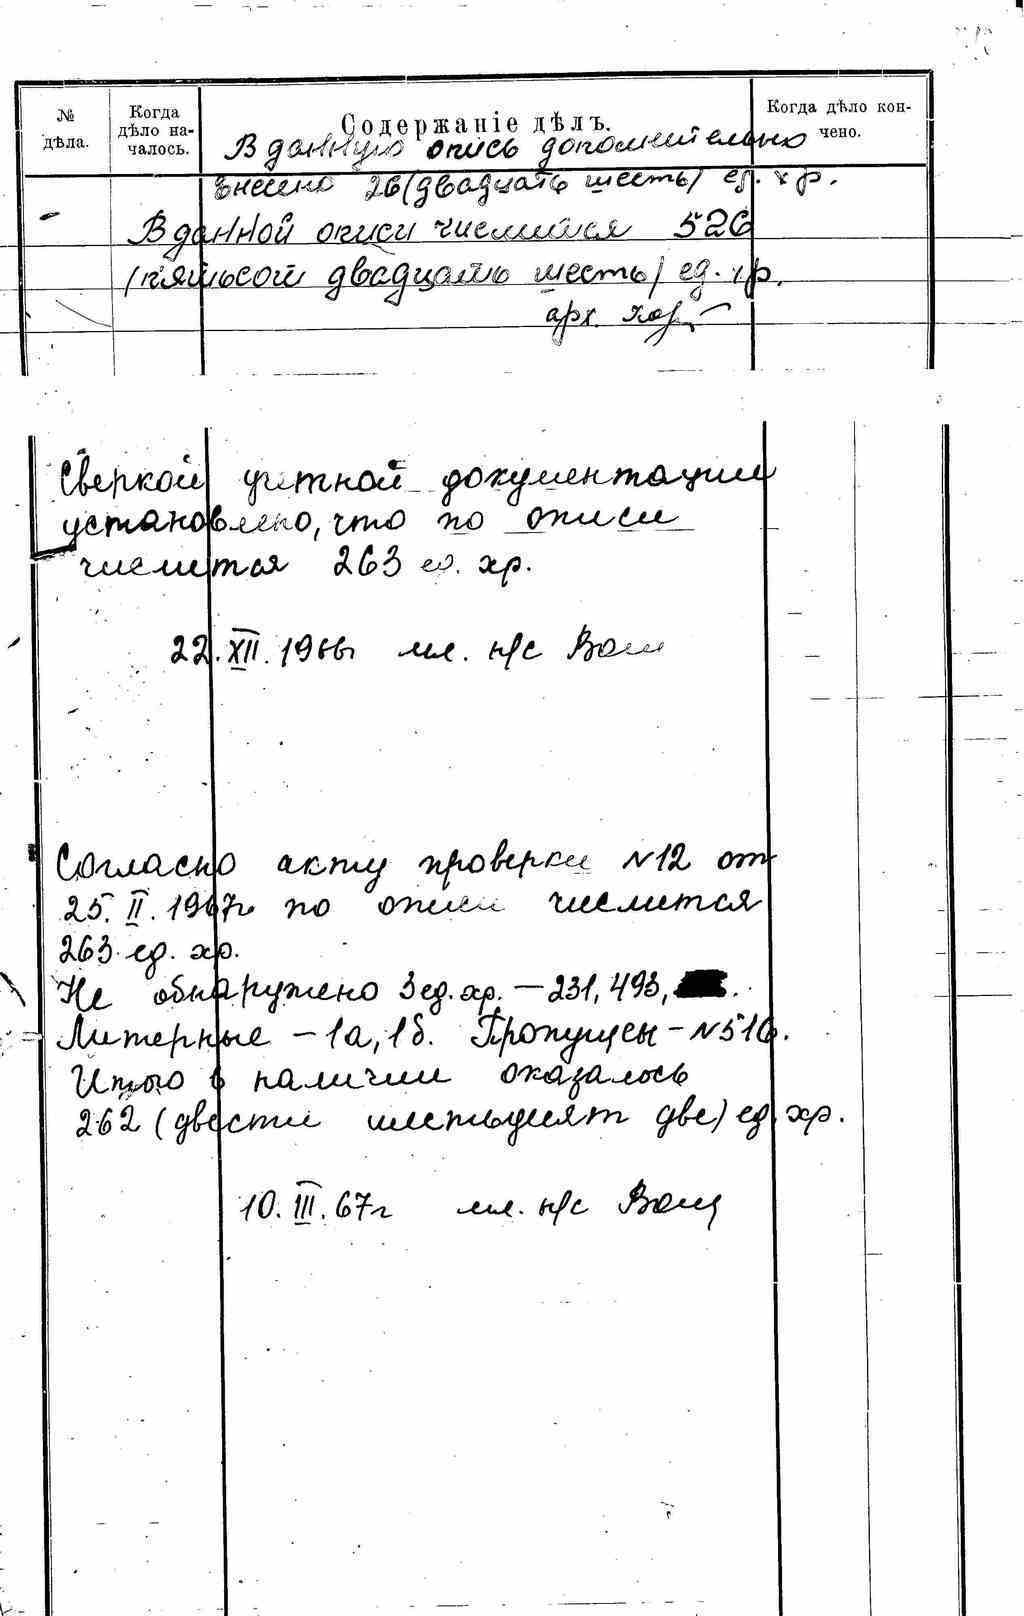 № дѣла.
Когда дѣло на-
чалось.
Содержаніе дѣлъ.
Когда дѣло кон-
чено.
В данную опись дополнительно
внесено 26 (двадцать шесть) ед. хр.
В данной описи числится 526
(пятьсот двадцать шесть) ед. хр.
арх.
Сверкой учетной документации
установлено, что по описи
числится 263 ед. хр.
22.XII.1966г мл. н/с
Согласно акту проверки N12 от
25.II.1967г по описи числится
263 ед. хр.
Не обнаружено 3 ед. хр. – 231, 493,
Литерные – 1а, 1б. Пропущен – N516.
Итого в наличии оказалось
262 (двести шестьдесят две) ед. хр.
10.III.67г мл. н/с